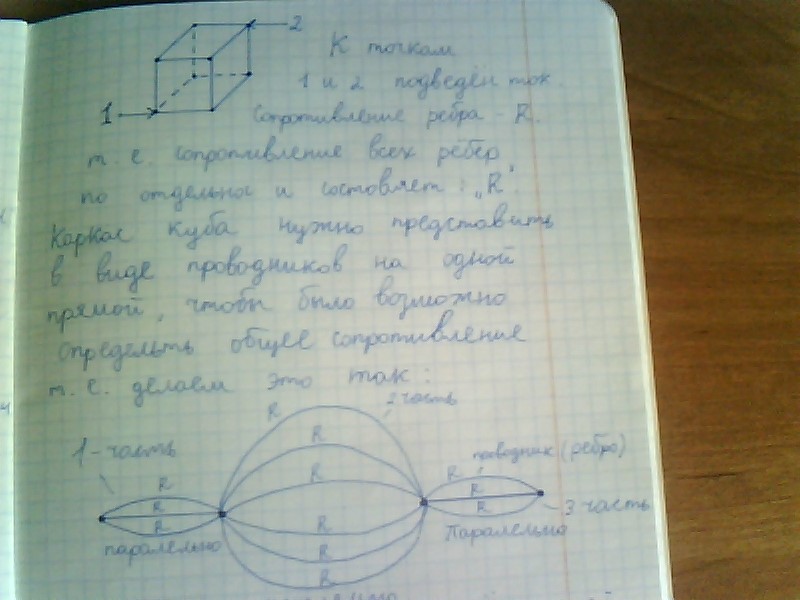 2
К точкам
1 и 2 подведён ток.
1
Сопротивление ребра - R.
т. е. сопротивление всех рёбер
по отдельности и состовляет: „R".
Каркас куба нужно представить
в виде проводников на одной
прямой, чтобы было возможно
определьть общее сопротивление
т. е. делаем это так:
R
2 часть
1-часть
R
R
проводник (ребро)
R
R
R
R
R
R
R
R
R
3 часть
паралельно
R
Паралельно
R